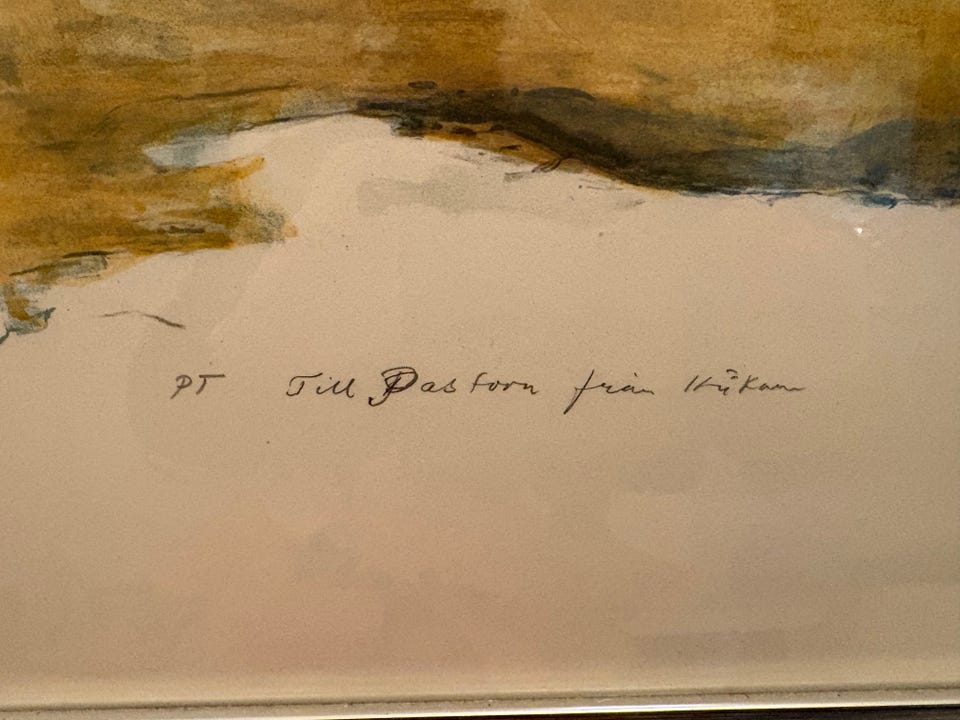 PT Till Pastorn från